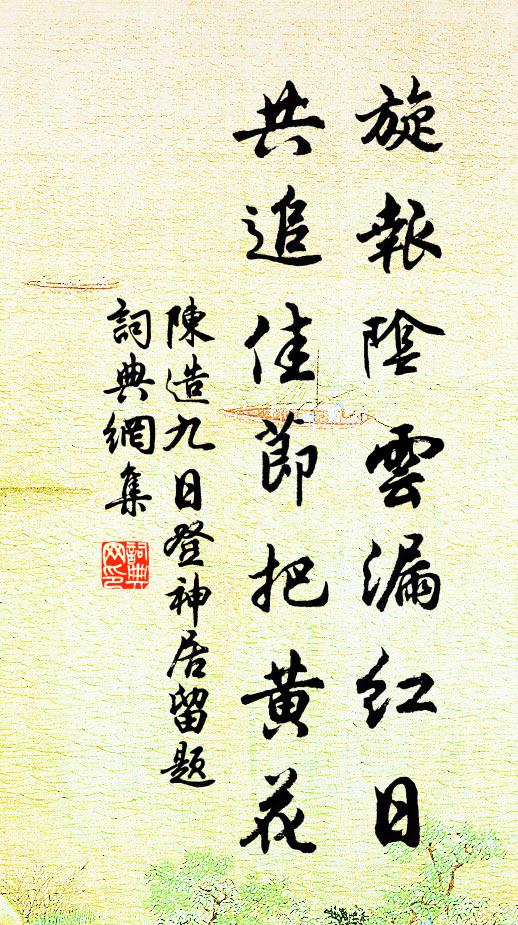 旋報陰雲漏紅日
共追佳節把黃花
陳造九日登神居留題
詞典網集
詞典网印